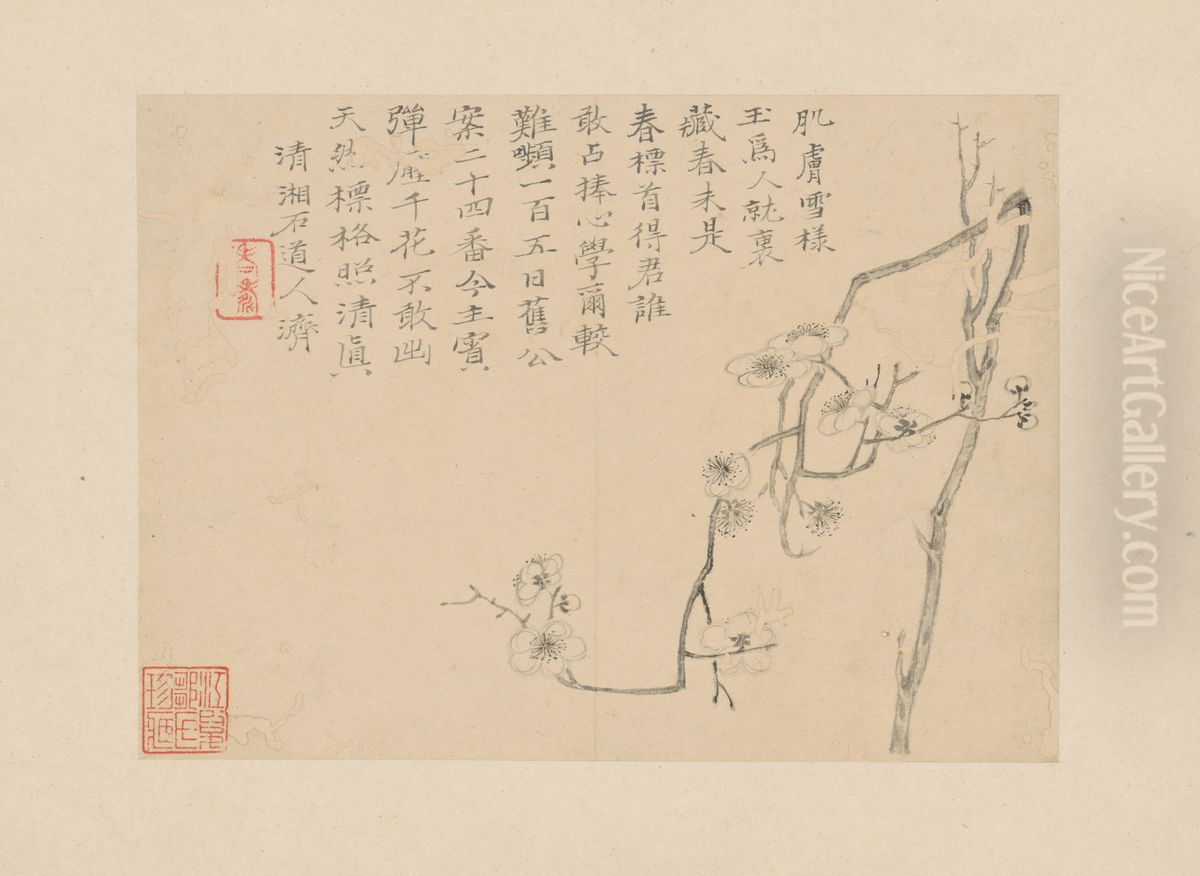 肌膚雪樣
玉爲人就裏
藏春未是
春標首得君誰
敢占捧心學爾較
難嚬一百五日舊公
案二十四番今主賓
彈壓千花不敢出
天然標格照清真
清湘石道人濟
江寧
鄧氏
珍藏
NiceArtGallery.com